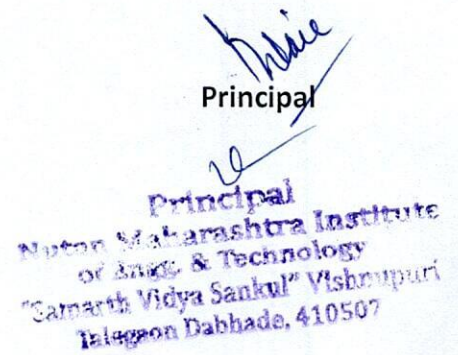 Principal
Principal
Nutan Maharashtra Institute
of Engg. & Technology
"Samarth Vidya Sankul" Vishnupuri
Talegaon Dabhade, 410507